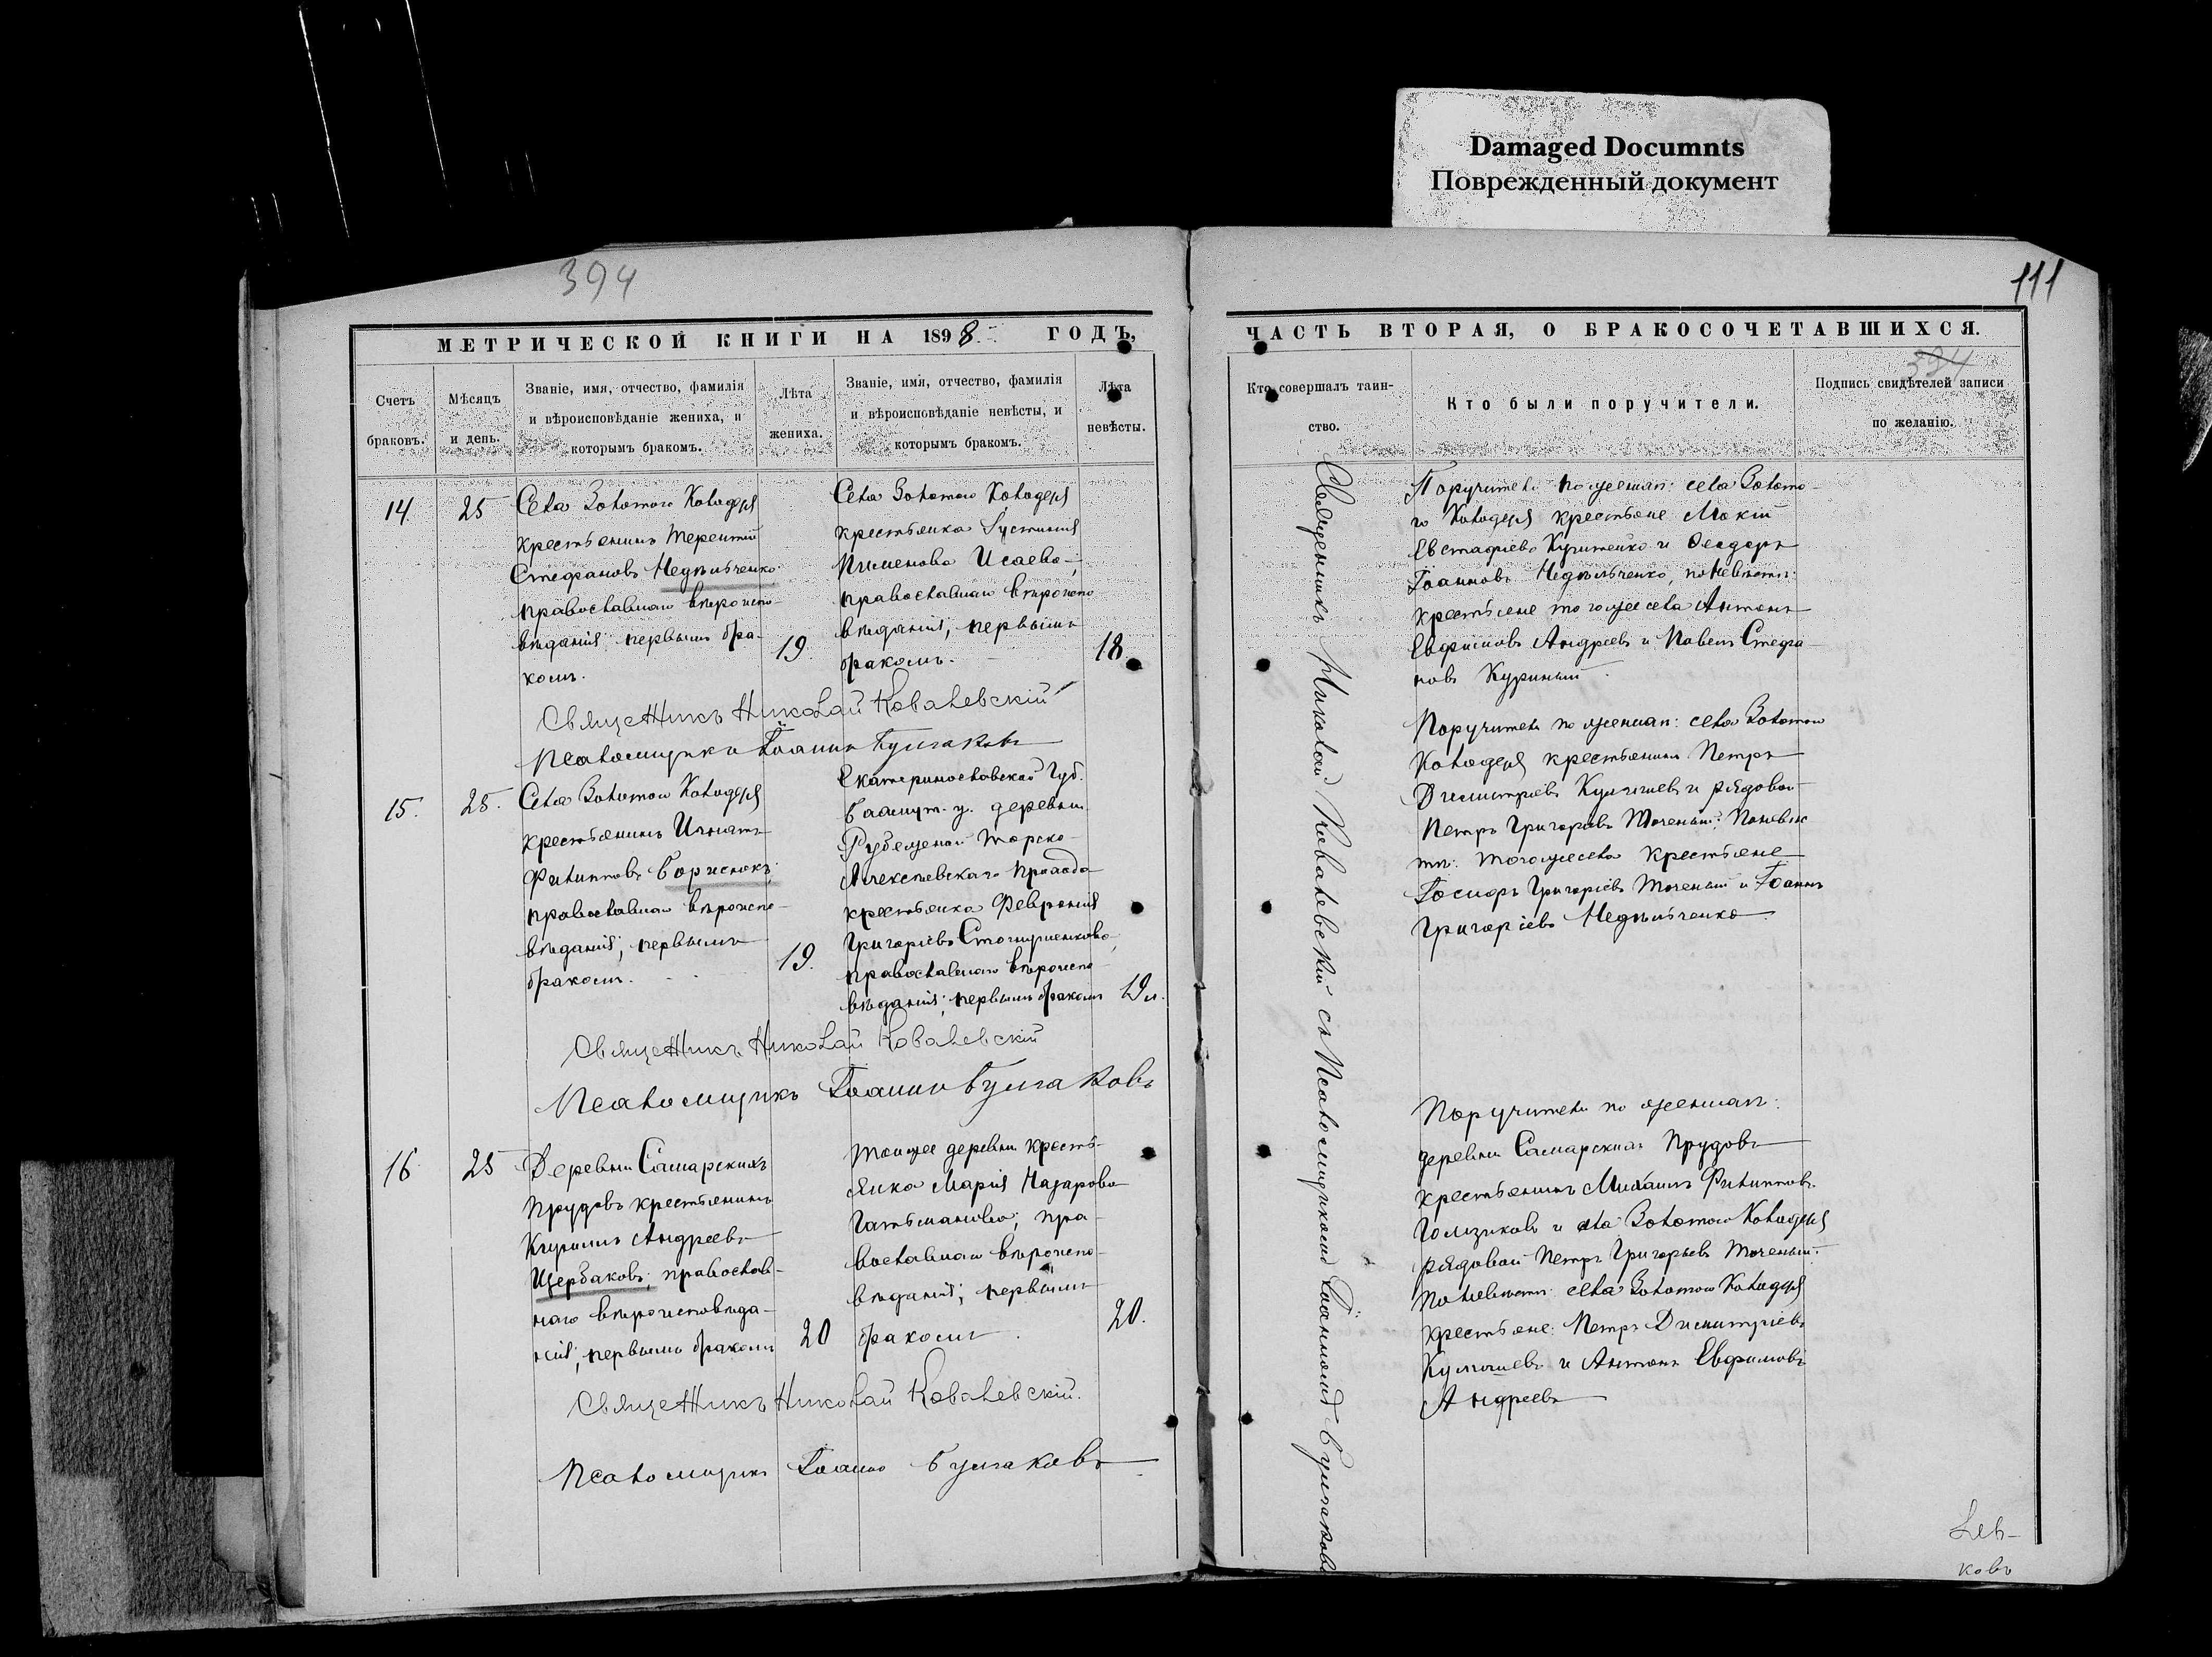 Damaged Documnts
Поврежденный документ
394
111
МЕТРИЧЕСКОЙ КНИГИ НА 1898 ГОДЪ,
Счетъ
браковъ.
Мѣсяцъ
и день.
Званіе, имя, отчество, фамилія
и вѣроисповѣданіе жениха, и
которымъ бракомъ.
Лѣта
жениха.
Званіе, имя, отчество, фамилія
и вѣроисповѣданіе невѣсты, и
которымъ бракомъ.
Лѣта
невѣсты.
14.
25
Села Золотого Колодезя
крестьянинъ Терентій
Стефановъ Недѣльченко
православнаго вѣроиспо-
вѣданія; первымъ бра-
комъ.
19.
Села Золотого Колодезя
крестьянка Іустинія
Пименова Исаева;
православнаго вѣроиспо
вѣданія; первымъ
бракомъ.
18.
Священникъ Николай Ковалевскій
Псаломщикъ Іоаннъ Булгаковъ
15.
25.
Села Золотого Колодезя
крестьянинъ Игнатъ
Филипповъ Борисюкъ;
православнаго вѣроиспо-
вѣданія; первымъ
бракомъ.
19.
Екатеринославской Губ.
Бахмут. у. деревни
Рубежной Торско-
Алексѣевскаго прихода
крестьянка Февронія
Григоріева
православнаго вѣроиспо
вѣданія; первымъ бракомъ
19 л.
Священникъ Николай Ковалевскій
Псаломщикъ Іоаннъ Булгаковъ
16
25
Деревни Самарскихъ
Прудовъ крестьянинъ
Андреевъ
Щербаковъ; православ-
наго вѣроисповѣда-
нія; первымъ бракомъ
20
Тоижее деревни кресть-
янка Марія Назарова
Гатьманова; пра-
вославнаго вѣроиспо-
вѣданія; первымъ
бракомъ.
20.
Священникъ Николай Ковалевскій.
Псаломщикъ Іоаннъ Булгаковъ
ЧАСТЬ ВТОРАЯ, О БРАКОСОЧЕТАВШИХСЯ.
394
Кто совершалъ таин-
ство.
Кто были поручители.
Подпись свидѣтелей записи
по желанію.
Священникъ Николай Ковалевскій съ Псаломщикомъ Іоанномъ Булгаковымъ
Поручители по женихѣ: села Золото-
го Колодезя крестьяне Мокій
Евстафіевъ и Ѳеодоръ
Іоанновъ Недѣльченко, по невѣстѣ:
крестьяне того же села Антонъ
Евфимовъ Андреевъ и Павелъ Стефа-
новъ Куриный.
Поручители по женихѣ: села Золотого
Колодезя крестьянинъ Петръ
Димитріевъ и рядовой
Петръ Григорьевъ Точеный; по невѣс
тѣ: того же села крестьяне
Іосифъ Григоріевъ Точеный и Іоаннъ
Григоріевъ Недѣльченко
Поручители по женихѣ:
деревни Самарскихъ Прудовъ
крестьянинъ Михаилъ Филипповъ
и села Золотого Колодезя
рядовой Петръ Григорьевъ Точеный:
по невѣстѣ: села Золотого Колодезя
крестьяне: Петръ Димитріевъ
и Антонъ Евфимовъ
Андреевъ
ковъ